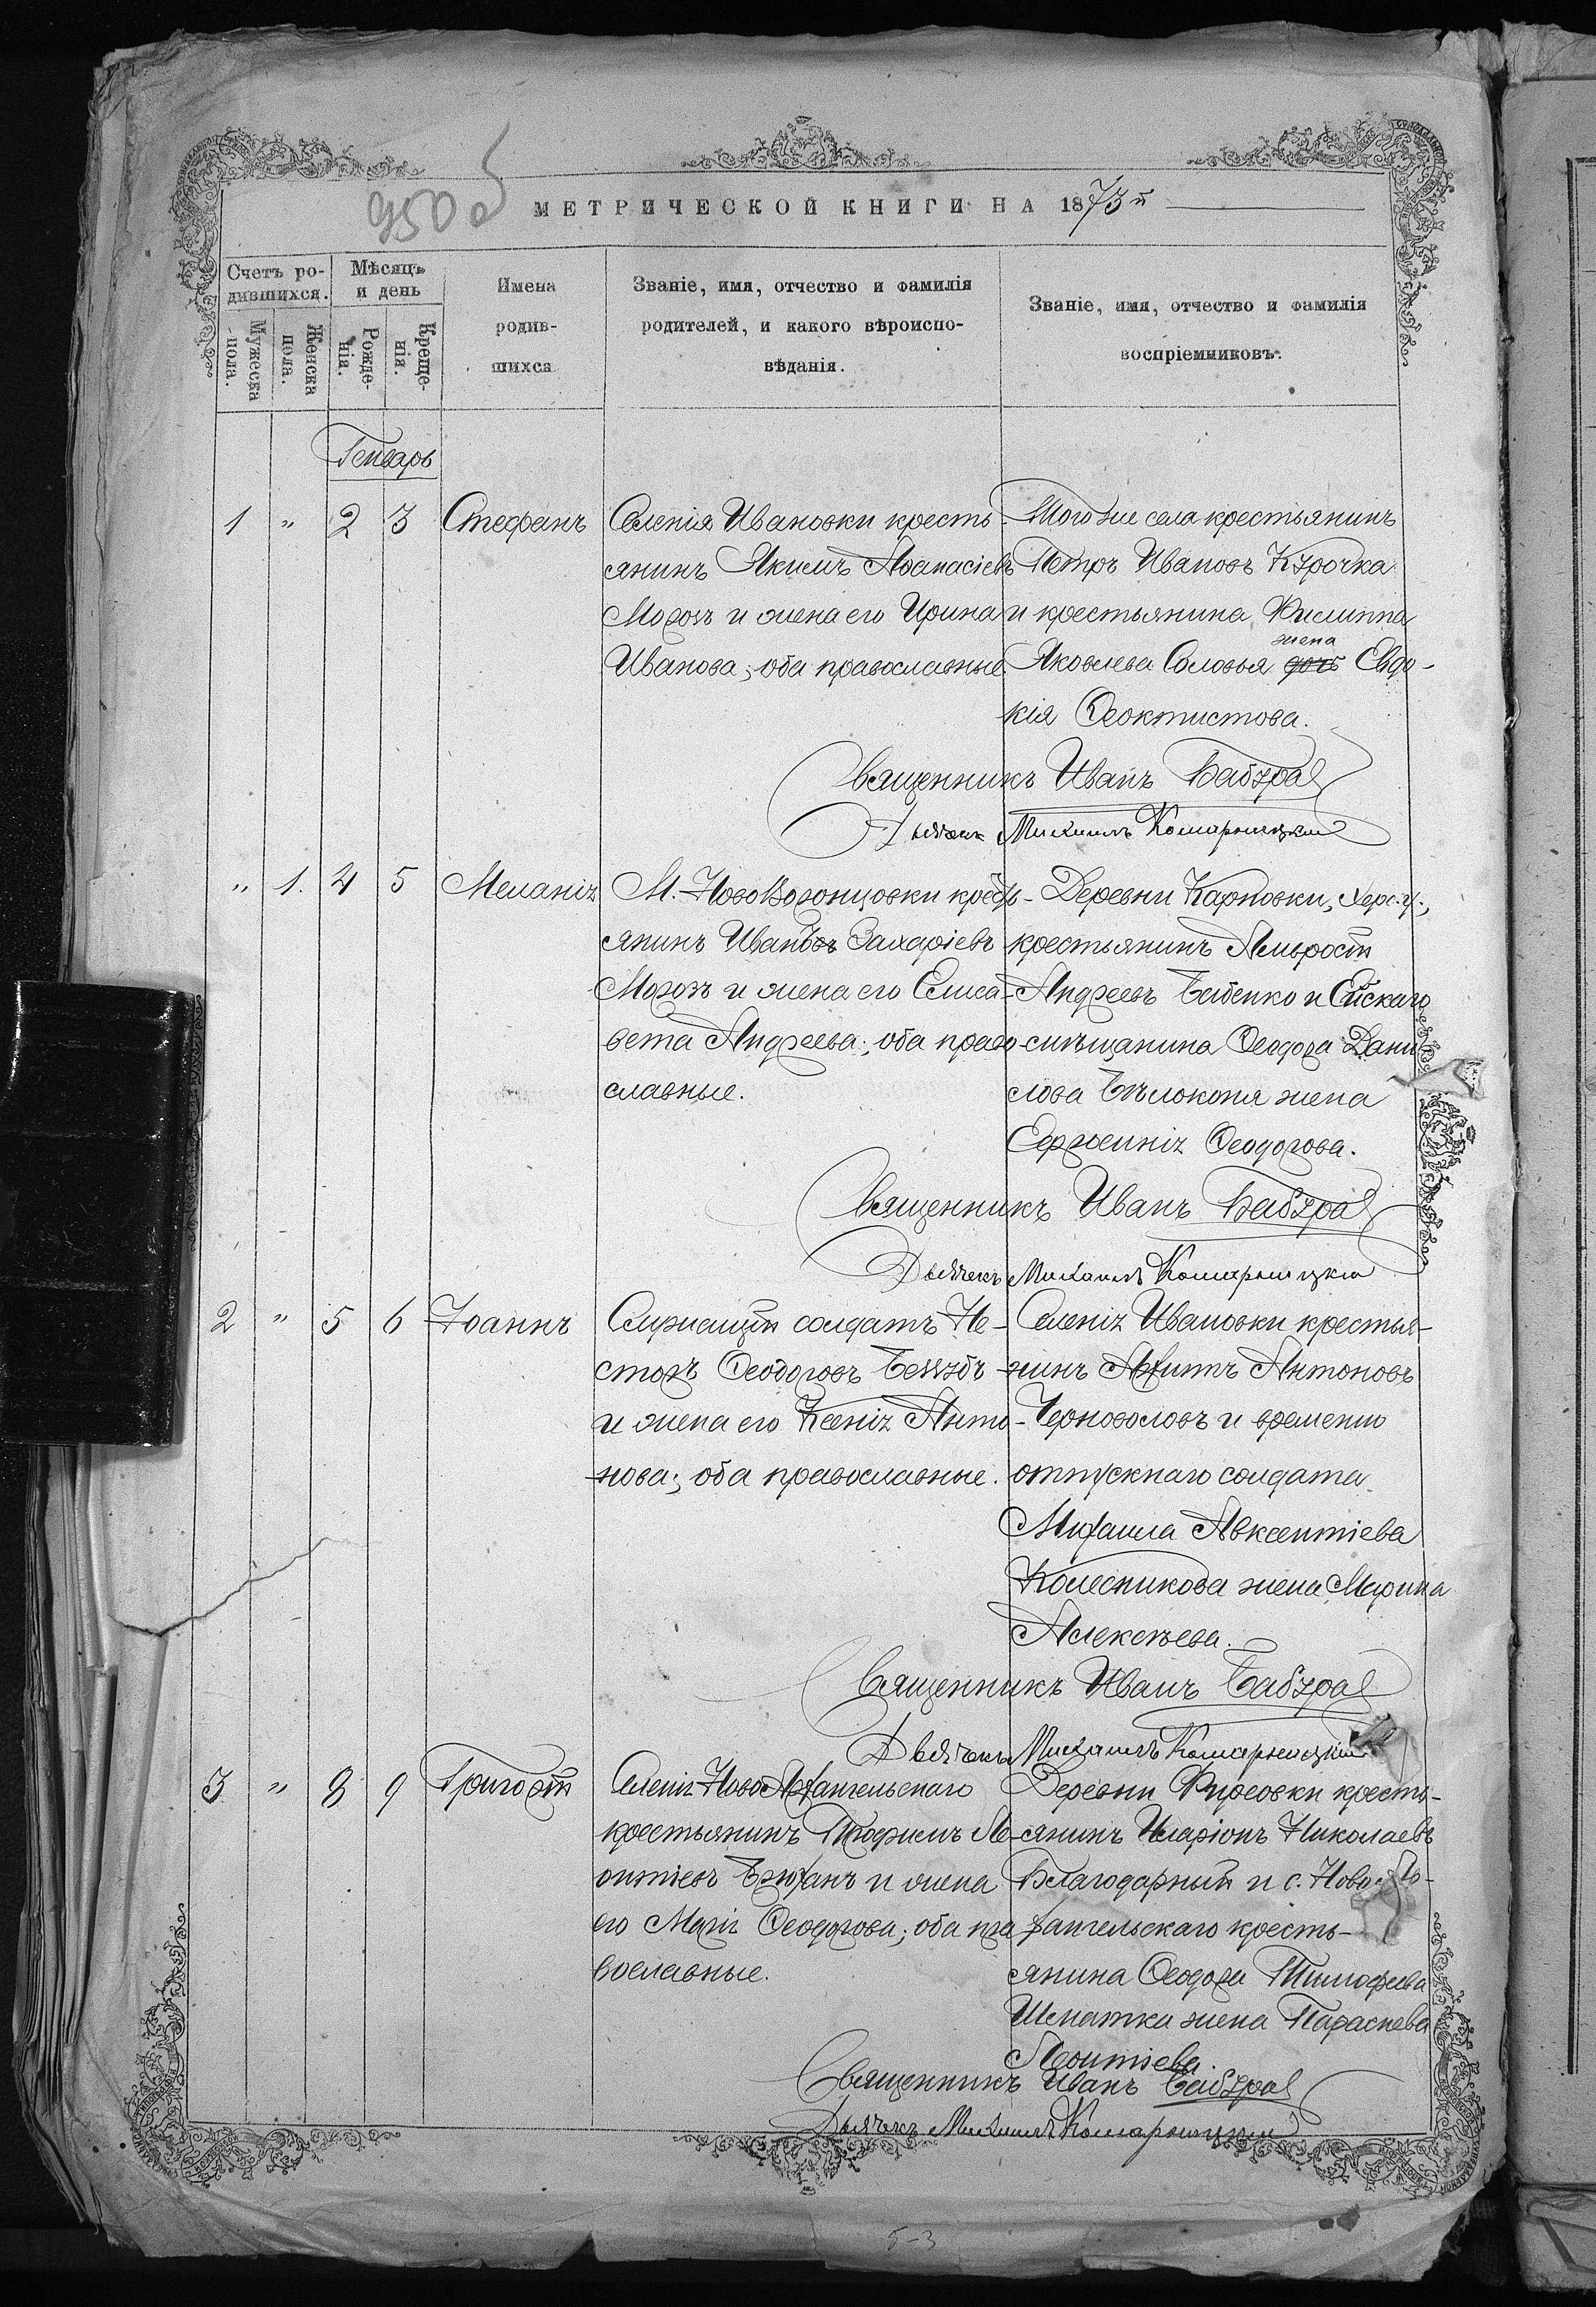 950 об
МЕТРИЧЕСКОЙ КНИГИ НА 1873й
Счетъ ро-
дившихся.
Мужеска
пола.
Женска
пола.
Мѣсяцъ
и день
Рожде-
нія.
Креще-
нія.
Имена
родив-
шихся
Званіе, имя, отчество и фамилія
родителей, и какого вѣроиспо-
вѣданія.
Званіе, имя, отчество и фамилія
воспріемниковъ.
Генварь
1 " 2 3 Стефанъ
Селенія Ивановки кресть-
янинъ Якимъ Аѳанасіевъ
Морозъ и жена его Ирина
Иванова; оба православные.
Того же села крестьянинъ
Петръ Ивановъ Курочка
и крестьянина Филиппа
Яковлева Соловья дочь жена Евдо-
кія Ѳеоктистова.
Священникъ Иванъ Бабура
Дьячекъ Михаилъ Комарницкій
" 1. 4 5 Меланія
М. Нововоронцовки кресть-
янинъ Иванъ Захаріевъ
Морозъ и жена его Елиса-
вета Андреева; оба право-
славные.
Деревни Карповки, Херс. у.,
крестьянинъ Амвросій
Андреевъ Бабенко и Ейскаго
мѣщанина Ѳеодора Дани-
лова Бѣлоконя жена
Евгенія Ѳеодорова.
Священникъ Иванъ Бабура
Дьячекъ Михаилъ Комарницкій
2 " 5 6 Іоаннъ
Служащій солдатъ Не-
сторъ Ѳеодоровъ
и жена его Ксенія Анто-
нова; оба православные.
Селенія Ивановки крестья-
нинъ Антоновъ
Черноволовъ и временно
отпускнаго солдата
Михаила Авксентіева
Колесникова жена Марина
Алексѣева.
Священникъ Иванъ Бабура
Дьячекъ Михаилъ Комарницкій
3 " 8 9 Григорій
Селенія Ново-Архангельскаго
крестьянинъ Трофимъ Ле-
онтіевъ Брюханъ и жена
его Марія Ѳеодорова; оба пра
вославные.
Деревни Фирсовки кресть-
янинъ Иларіонъ Николаевъ
Благодарный и с. Ново-Ар-
хангельскаго кресть-
янина Ѳеодора Тимофеева
Шматка жена Параскева
Леонтіева.
Священникъ Иванъ Бабура
Дьячекъ Михаилъ Комарницкій
5-3